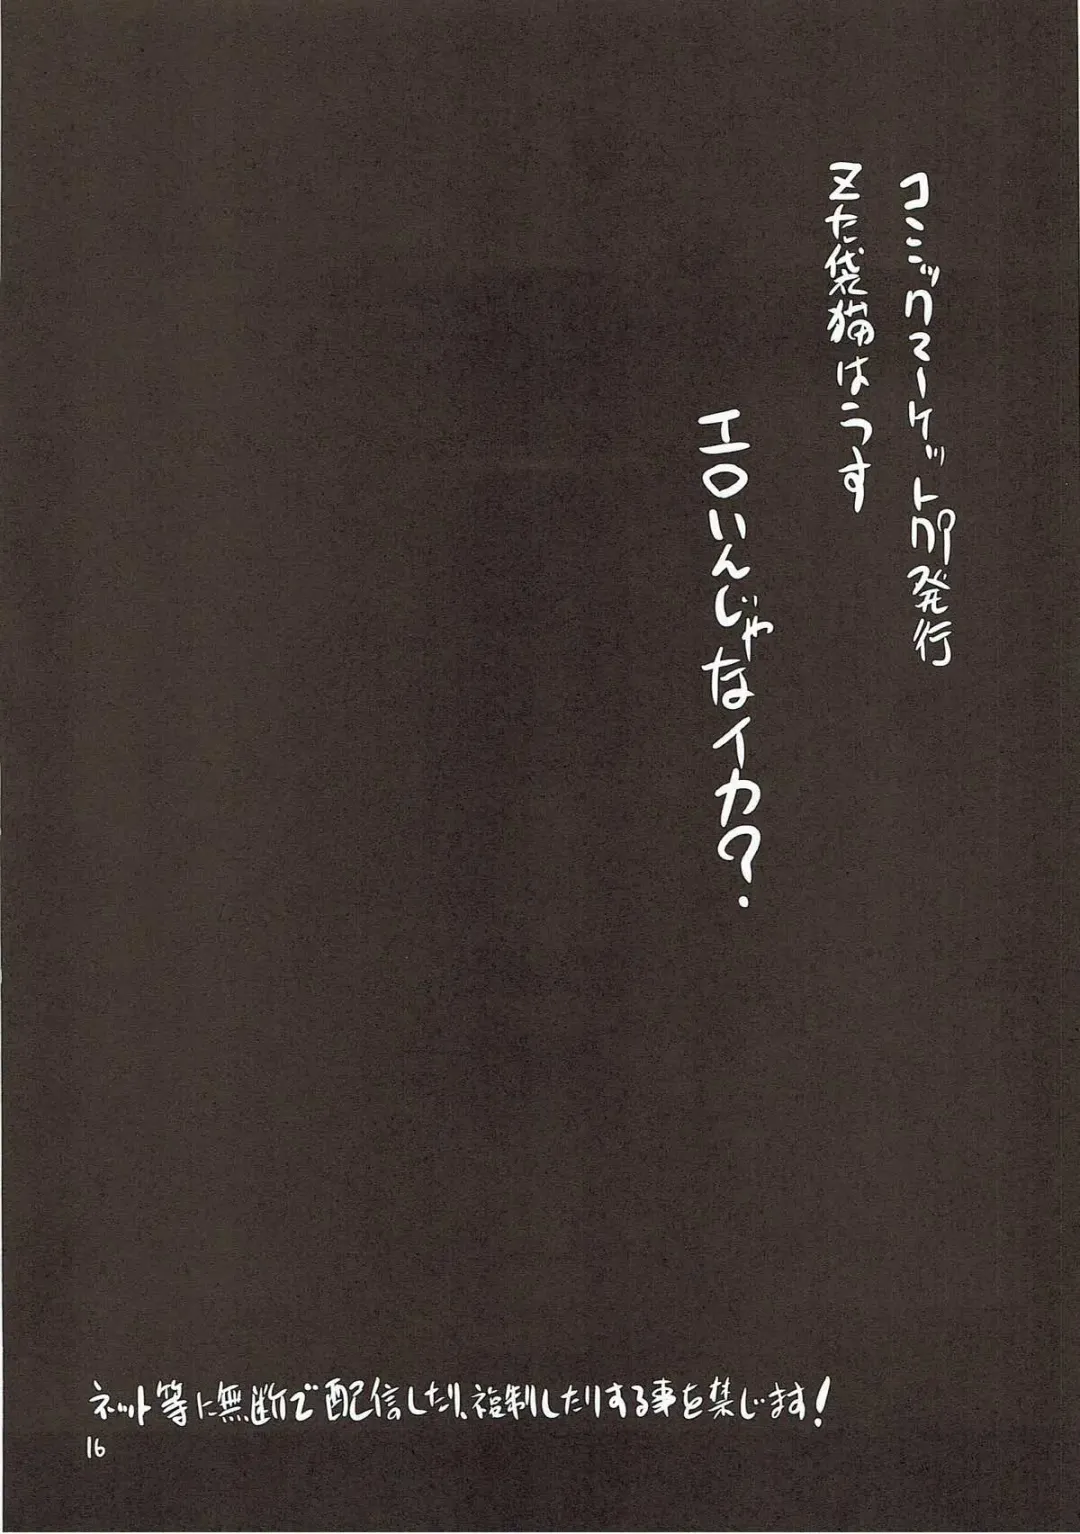 コミックマーケット79発行
Zた袋猫はうす
エロいんじゃなイカ?
ネット等に無断で配信したり、複製したりする事を禁じます!
16